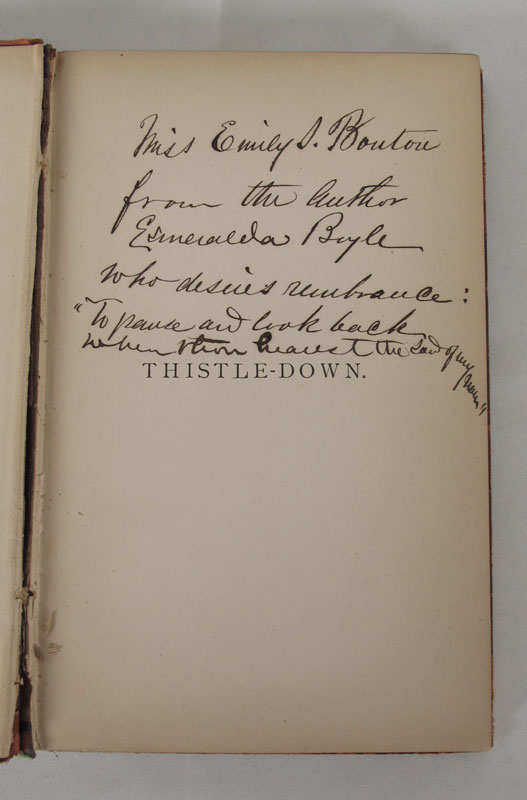 Miss Emily S. Bouton
from the Author
Esmeralda Boyle
who desires rembrance:
"To pause and look back
when thou hearest the sound of my name"
THISTLE-DOWN.